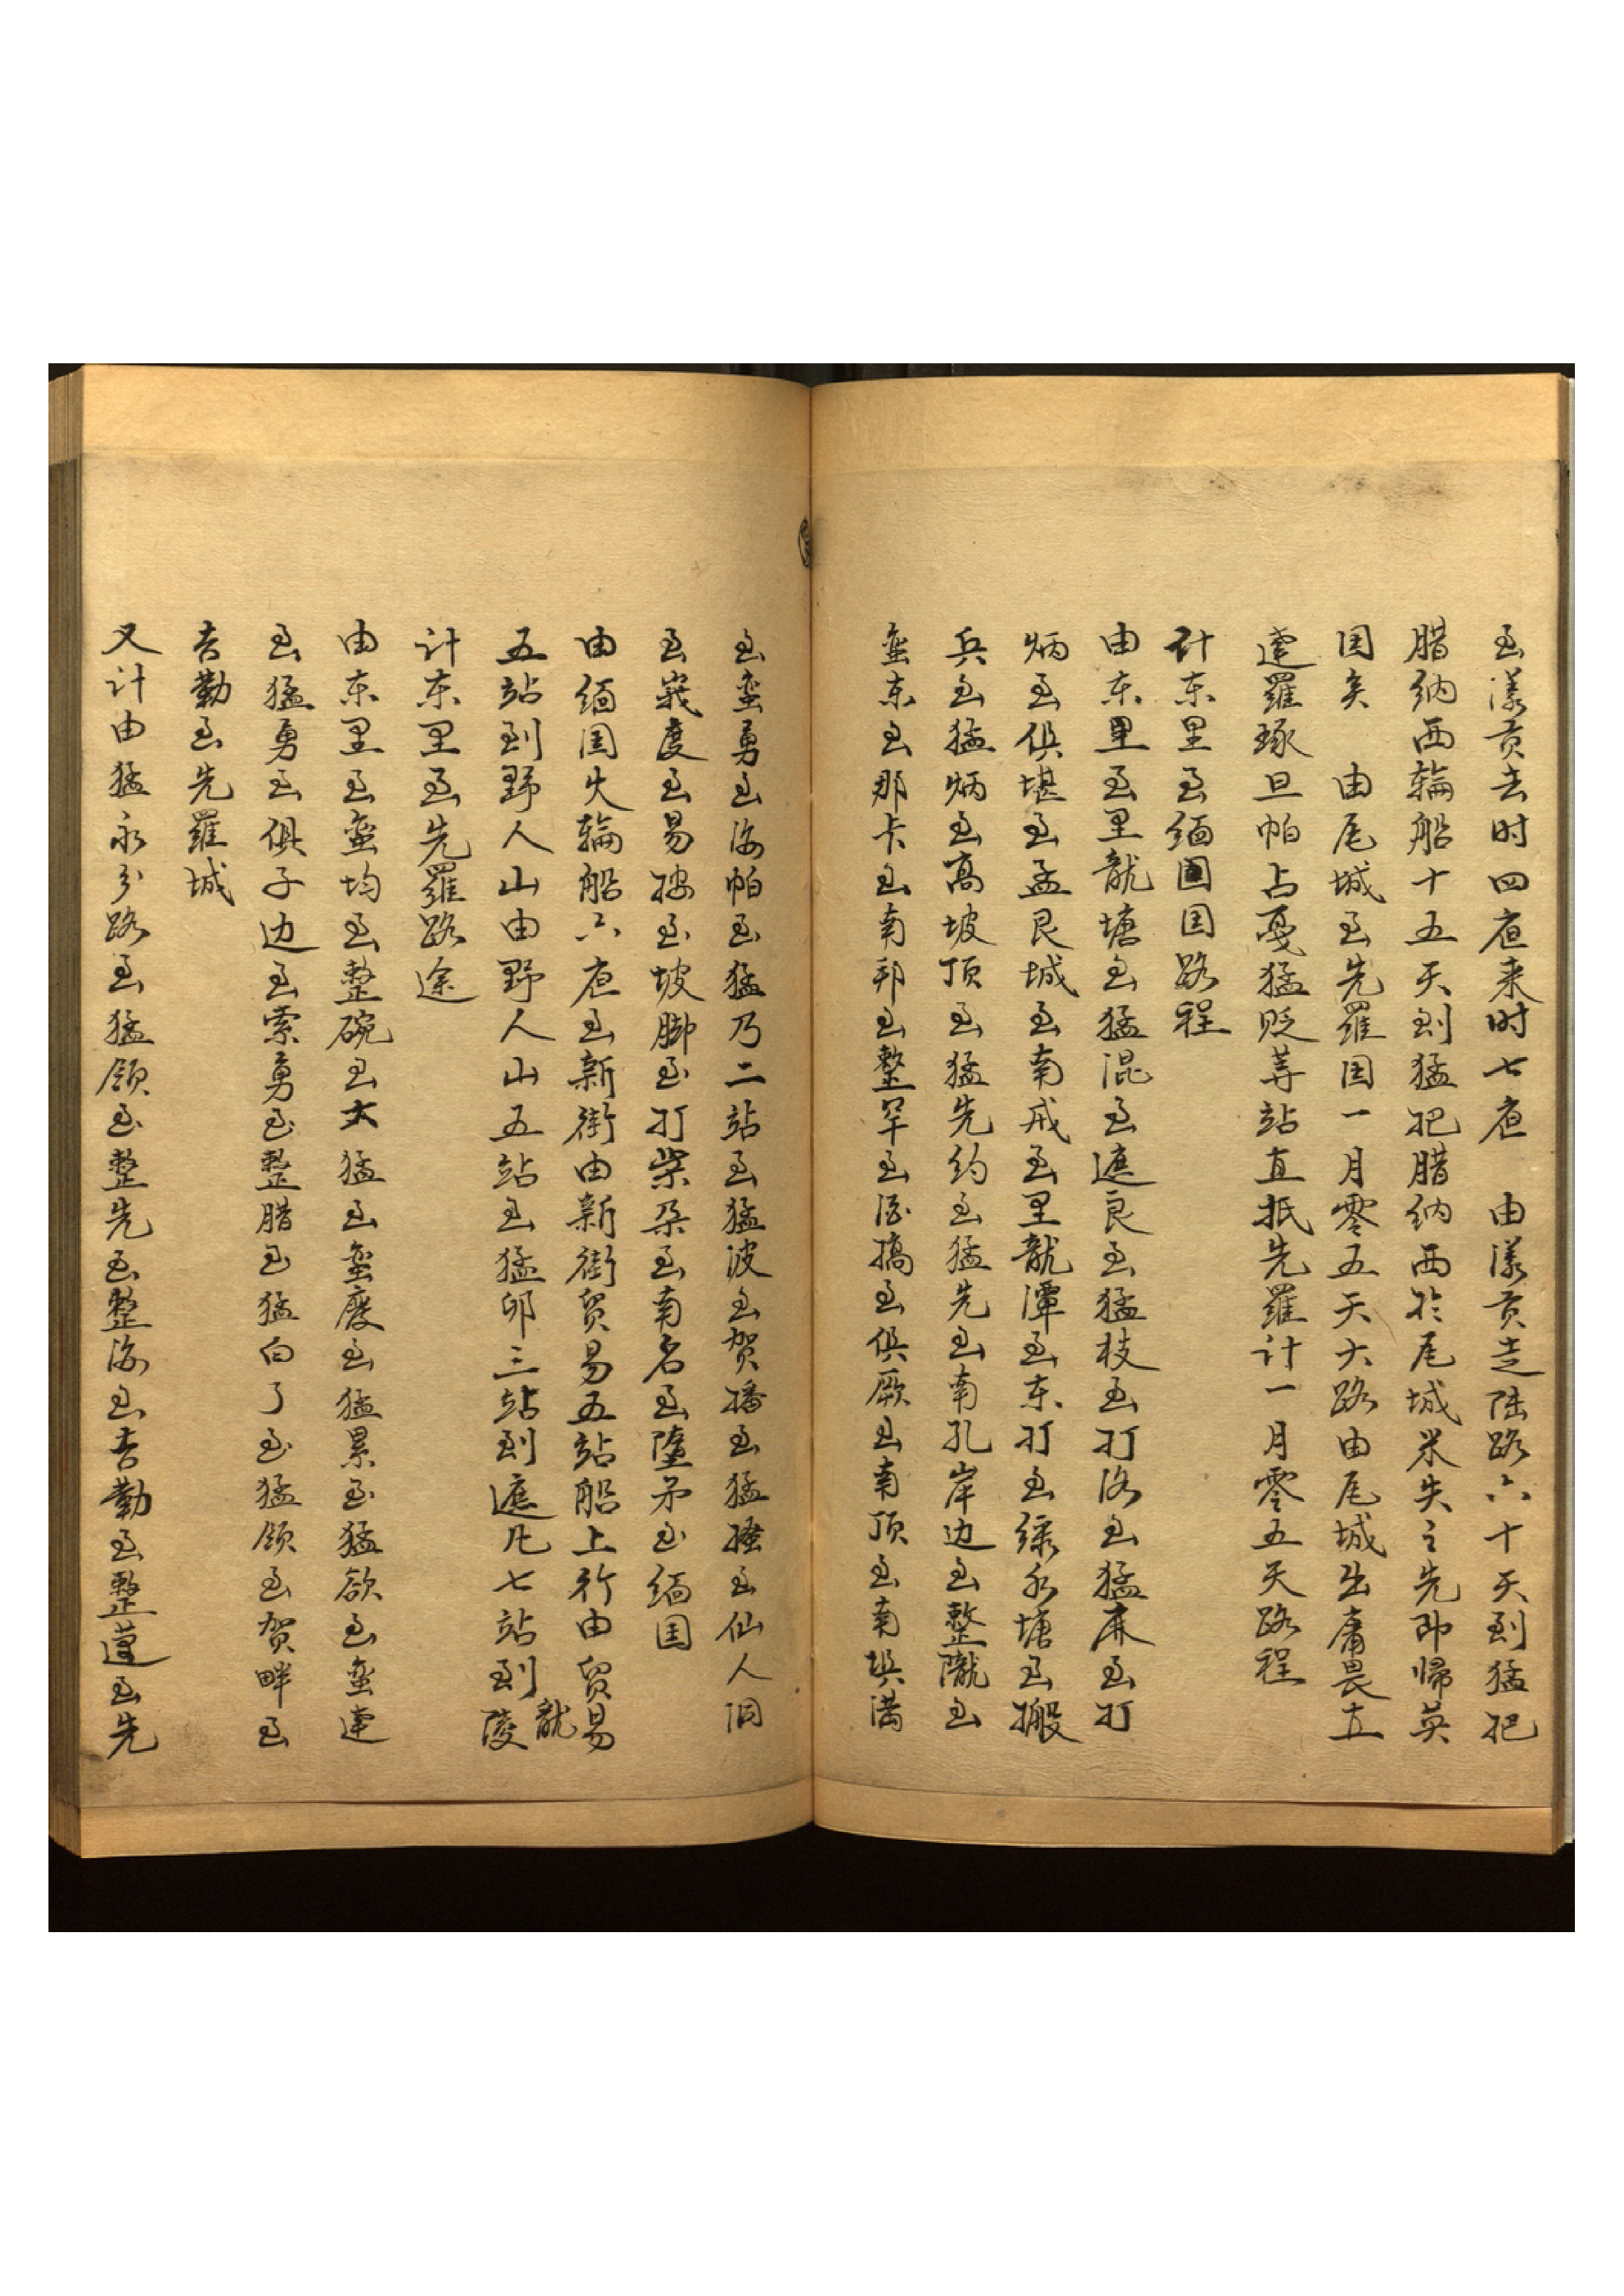 至漾贡去时四夜来时七夜　由漾贡走陆路六十天到猛把
腊纳西輪船十五天到猛把腊纳西於尾城米失之先即歸英
国矣　由尾城至先羅国一月零五天大路由尾城出庸畏立
達羅琢旦帕占戞猛貶荨站直抵先羅计一月零五天路程
计东里至缅国国路程
由东里至里龍塘至猛混至遮良至猛枝至打洛至猛麻至打
炳至俱堪至孟艮城至南戒至里龍潭至东打至绿水塘至搬
兵至猛炳至高坡顶至猛先约至猛先至南孔岸边至整隴至
蛮东至那卡至南邦至整罕至酒搞至俱厥至南顶至南埧满
至蛮勇至海帕至猛乃二站至猛波至贺播至猛搔至仙人洞
至峩度至易按至坡脚至打柴朶至南名至墮矛至缅国
由缅国火輪船六夜至新街由新街貿易五站船上行由貿易
五站到野人山由野人山五站至猛卯三站到遮凡七站到龍陵
计东里至先羅路途
由东里至蛮均至整碗至大猛至蛮廢至猛累至猛欲至蛮連
至猛勇至俱子边至索勇至整腊至猛白了至猛领至贺畔至
吉勤至先羅城
又计由猛永分路至猛领至整先至整海至吉勤至整蓬至先